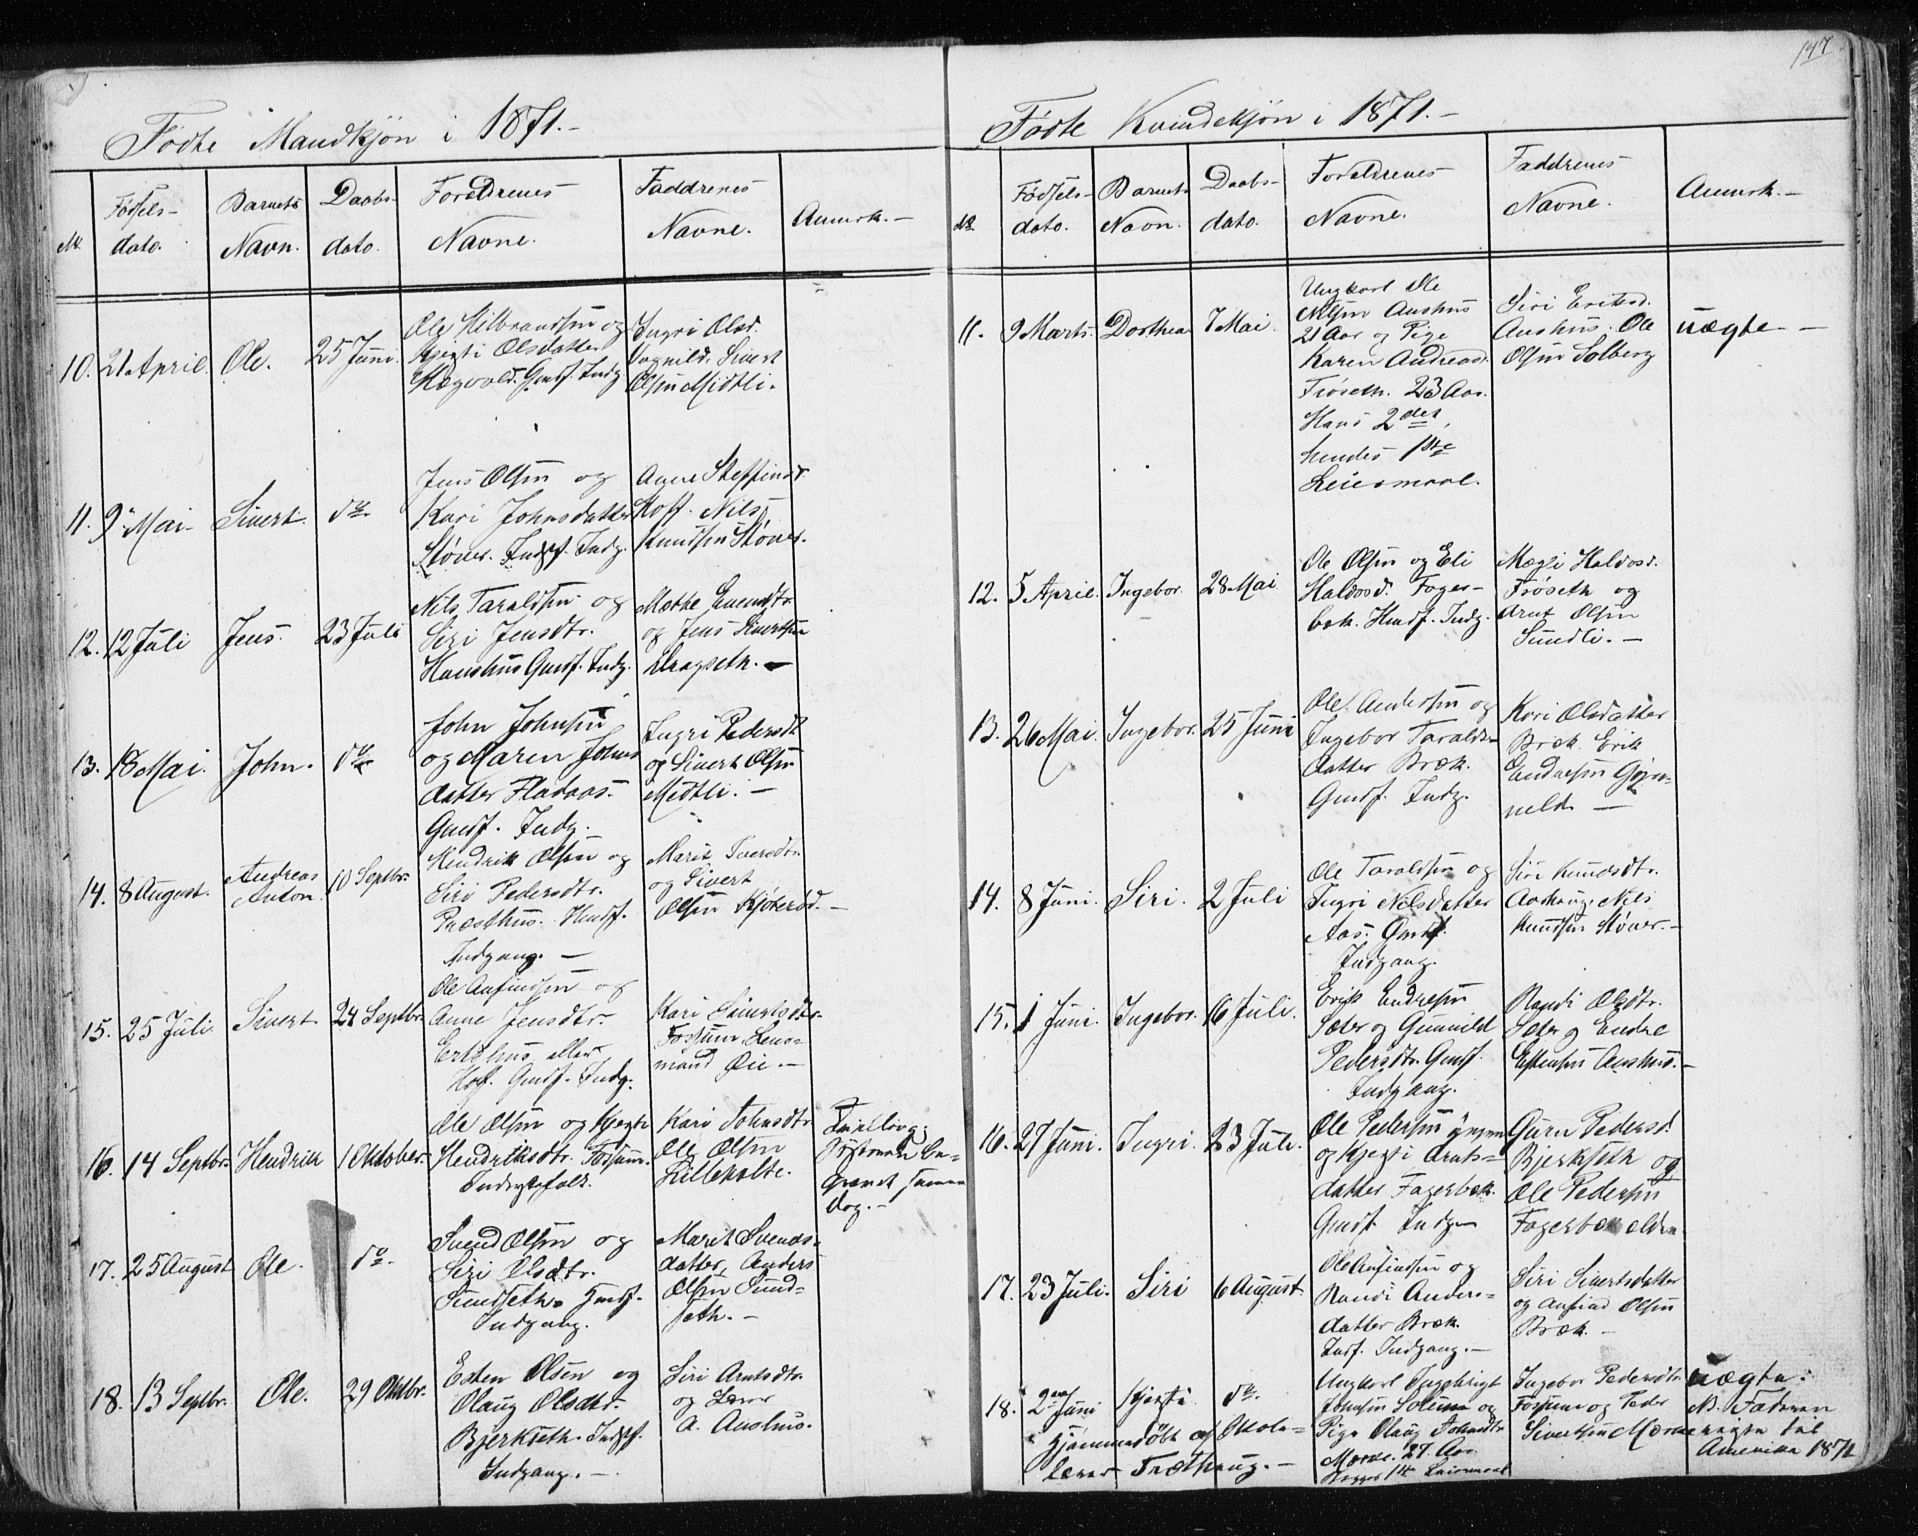 147
Fødte Mandkjøn i 1871.-
№
Fødsels-
dato.
Barnets
Navn.
Daabs-
dato.
Forældrenes
Navne.
Faddrenes
Navne.
Anmrk.-
10.
21 April.
Ole.
25 Juni.
Ole Hilbrandsen og
Kjersti Olsdatter
Gmdf. Indg
Ingri Olsd.
Vognild. Sivert
Olsen Midtli.
11.
9 Mai
Sivert.
do
Jens Olsen og
Kari Johnsdatter
Støver. Indstf. Indg.
Agne Steffensd.
Hoff. Nils
Knudsen Støver.
12.
12 Juli
Jens.
23 Juli
Nils Taraldsen og
Siri Jensdtr.
Haushus Gmdf. Indg.
Mette Svendsdtr.
og Jens Sivertsen
Dragseth.-
13.
18 Mai.
John.
do
John Johnsen
og Maren Johns
datter Fladaas.
Gmdf. Indg.
Ingri Pedersdt
og Sivert Olsen
Midtli.-
14.
8 August.
Andreas
Anton.
10 Septbr.
Hendrik Olsen og
Siri Pedersdtr.
Præsthus. Hmdf.
Indgang.-
Marit Iversdtr.
og Sivert
Olsen
15.
25 Juli.
Sivert
24 Septbr.
Ole Anfindsen og
Anne Jensdtr.
eller
Hof. Gmdf. Indg.
Kari Sivertsdtr.
Fossum Lens-
mand Øie.-
16.
14 Septbr.
Hendrik
1 Oktober.
Ole Olsen og Kjersti
Hendriksdtr. Fossum.
Inderstfolk.
Kari Johnsdtr
Ole Olsen
Lilleholte.
Tvilling;
dog.-
17.
25 August
Ole.
do.
Svend Olsen og
Siri Olsdtr.
Sundseth. Gmdf.
Indgang.
Marit Svends-
datter, Anders
Olsen Sund-
seth.-
18.
13 Septbr.
Ole.
29 Oktbr.
Esten Olsen og
Olaug Olsdtr.
Bjerkseth. Indstf.
Indgang.-
Siri Arntsdtr.
og Lærer
A. Aushus.
Fødte Kvindekjøn i 1871.-
№
Fødsels-
dato.
Barnets
Navn.
Daabs-
dato.
Forældrenes
Navne.
Faddrenes
Navne.
Anmrk.-
11.
9 Marts.
Dorthea
7 Mai.
Ungkarl Ole
Nilsen Aushus
21 Aar og Pige
Karen Andreasd.
Frøseth. 23 Aar.
Hans 2det,
hendes 1ste
Leiermaal.
Siri Eriksd.
Aushus. Ole
Olsen Solberg
uægte-
12.
5 April.
Ingebor.
28 Mai
Ole Olsen og Eli
Haldosd. Fager-
bæk. Hmdf. Indg.
Magli Haldosd.
Frøseth og
Arnt Olsen
Sundli.-
13.
26 Mai.
Ingebor.
25 Juni
Ole Andersen og
Ingebor Taralds-
datter Bræk.
Gmdf. Indg.
Kari Olsdatter
Bræk. Erik
Endresen Gjem-
14.
8 Juni.
Siri.
2 Juli
Ole Taraldsen og
Ingri Nilsdatter
Aas. Gmdf.
Indgang.
Siri Knudsdtr.
Aashaug. Nils
Knudsen Støver.-
15.
1 Juni.
Ingebor.
16 Juli.
Erik Endresen
Sæter og Gunnild
Pedersdtr. Gmdf.
Indgang.
Randi Olsdtr.
Sæter og Endre
Estensen Aushus.-
16.
27 Juni.
Ingri.
23 Juli.
Ole Pedersen yngre
og Kjersti Arnts-
datter Fagerbæk.
Gmdf. Indg-
Guru Pedersd.
Bjerkseth og
Ole Pedersen
Fagerbæk ældre.
17.
23 Juli.
Siri
6 August
Ole Anfindsen og
Randi Anders-
datter Bræk.
Indf. Indgang.-
Siri Sivertsdatter
og Anfind Olsen
Bræk.-
18.
2den Juni
Kjersti
do.
Hjemmedøbt af Skole-
Lærer Træthaug.-
Ungkarl Ingebrigt
Johnsen Solem og
Pige Olaug Johnsdtr
27. Aar
Begges 1st Leiermaal
Ingebor Pedersdtr.
Fossum og Peder
Sivertsen
uægte.
N. Faderen
reiste til
Amerika 1872